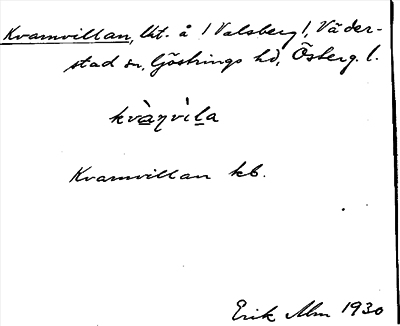 Kvarnvillan, lht. å 1 Valsberg 1, Väder-
stad sn, Göstrings hd, Österg. l.
kvàn̥vìl̲a
Kvarnvillan kb.
Erik Alm 1930